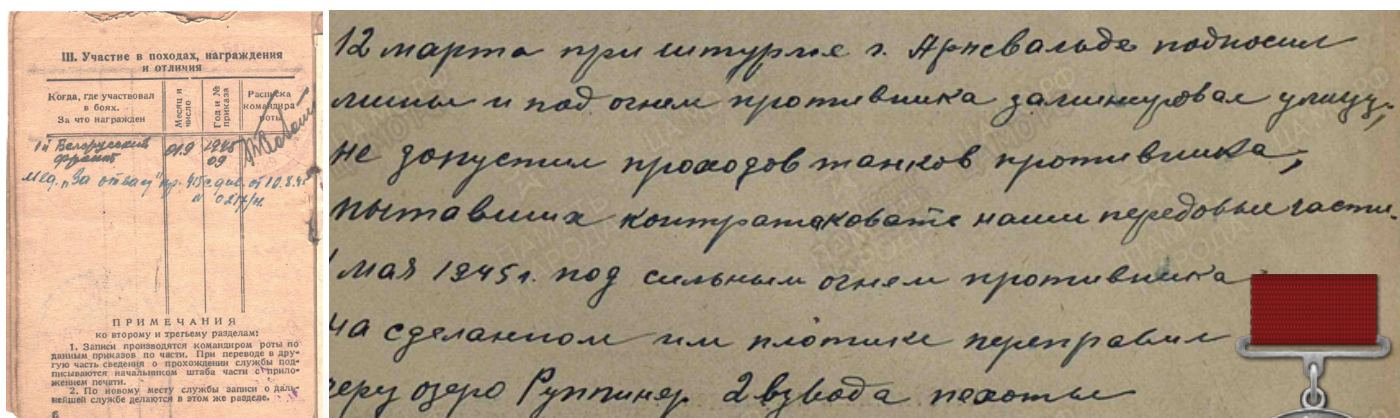 III. Участие в походах, награждения
и отличия
Когда, где участвовал
в боях.
За что награжден
Месяц и
число
Год и №
приказа
Расписка
командира
роты
1й Белорусский
фронт
01.9
1945
09
Мед. "За отвагу" пр. 415 с.див. от 10.8.45
N 027/н.
ПРИМЕЧАНИЯ
ко второму и третьему разделам:
1. Записи производятся командиром роты по
данным приказов по части. При переводе в дру-
гую часть сведения о прохождении службы под-
писываются начальником штаба части с прило-
жением печати.
2. По новому месту службы записи о даль-
нейшей службе делаются в этом же разделе.
6
12 марта при штурме г. Арнсвальде подносил
мины и под огнем противника заминировал улицу,
не допустил проходов танков противника,
пытавших контратаковать наши передовые части
мая 1945г. под сильным огнем противника
на сделанном им плотике переправил
озеро Руппинер 2 взвода пехоты